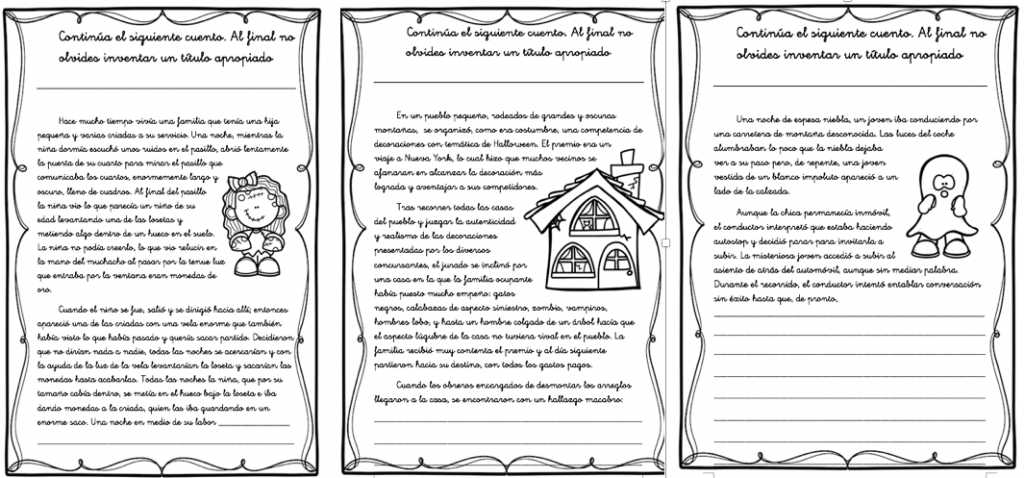 Continúa el siguiente cuento. Al final no
olvides inventar un título apropiado
Hace mucho tiempo vivía una familia que tenía una hija
pequeña y varias criadas a su servicio. Una noche, mientras la
niña dormía escuchó unos ruidos en el pasillo, abrió lentamente
la puerta de su cuarto para mirar el pasillo que
comunicaba los cuartos, enormemente largo y
oscuro, lleno de cuadros. Al final del pasillo
la niña vio lo que parecía un niño de su
edad levantando una de las losetas y
metiendo algo dentro de un hueco en el suelo.
La niña no podía creerlo, lo que vio relucir en
la mano del muchacho al pasar por la tenue luz
que entraba por la ventana eran monedas de
oro.
Cuando el niño se fue, salió y se dirigió hacia allí; entonces
apareció una de las criadas con una vela enorme que también
había visto lo que había pasado y quería sacar partido. Decidieron
que no dirían nada a nadie, todas las noches se acercarían y con
la ayuda de la luz de la vela levantarían la loseta y sacarían las
monedas hasta acabarlas. Todas las noches la niña, que por su
tamaño cabía dentro, se metía en el hueco bajo la loseta e iba
dando monedas a la criada, quien las iba guardando en un
enorme saco. Una noche en medio de su labor
Continúa el siguiente cuento. Al final no
olvides inventar un título apropiado
En un pueblo pequeño, rodeados de grandes y oscuras
montañas, se organizó, como era costumbre, una competencia de
decoraciones con temática de Halloween. El premio era un
viaje a Nueva York, lo cual hizo que muchos vecinos se
afanaran en alcanzar la decoración más
lograda y aventajar a sus competidores.
Tras recorrer todas las casas
del pueblo y juzgar la autenticidad
y realismo de las decoraciones
presentadas por los diversos
concursantes, el jurado se inclinó por
una casa en la que la familia ocupante
había puesto mucho empeño: gatos
negros, calabazas de aspecto siniestro, zombis, vampiros,
hombres lobo, y hasta un hombre colgado de un árbol hacía que
el aspecto lúgubre de la casa no tuviera rival en el pueblo. La
familia recibió muy contenta el premio y al día siguiente
partieron hacia su destino, con todos los gastos pagos.
Cuando los obreros encargados de desmontar los arreglos
llegaron a la casa, se encontraron con un hallazgo macabro:
Continúa el siguiente cuento. Al final no
olvides inventar un título apropiado
Una noche de espesa niebla, un joven iba conduciendo por
una carretera de montaña desconocida. Las luces del coche
alumbraban lo poco que la niebla dejaba
ver a su paso pero, de repente, una joven
vestida de un blanco impoluto apareció a un
lado de la calzada.
Aunque la chica permanecía inmóvil,
el conductor interpretó que estaba haciendo
autostop y decidió parar para invitarla a
subir. La misteriosa joven accedió a subir al
asiento de atrás del automóvil, aunque sin mediar palabra.
Durante el recorrido, el conductor intentó entablar conversación
sin éxito hasta que, de pronto,